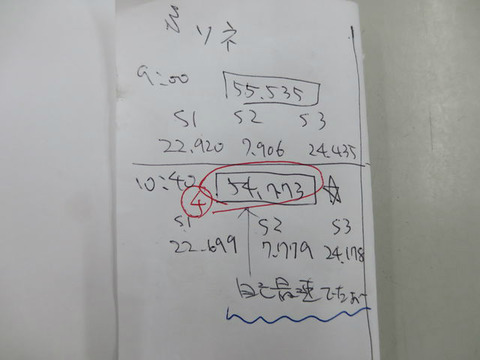 9:00 55.535
S1 S2 S3
22.920 7.906 24.435
10:40 54.773 ☆
4
S1 S2 S3
22.699 7.779 24.178
自己最速でたぁー